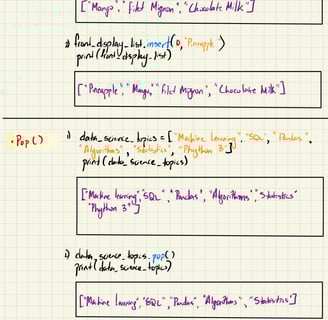 ["Mango", "Filet Mignon", "Chocolate Milk"]
2) front_display_list.insert(0, "Pineapple")
print(front_display_list)
["Pineapple", "Mango", "Filet Mignon", "Chocolate Milk"]
• Pop()
1) data_science_topics = ["Machine learning", "SQL", "Pandas",
"Algorithms", "Statistics", "Phython 3"]
print(data_science_topics)
["Machine learning", "SQL", "Pandas", "Algorithms", "Statistics"
"Phython 3"]
2) data_science_topics.pop()
print(data_science_topics)
["Machine learning", "SQL", "Pandas", "Algorithms", "Statistics"]